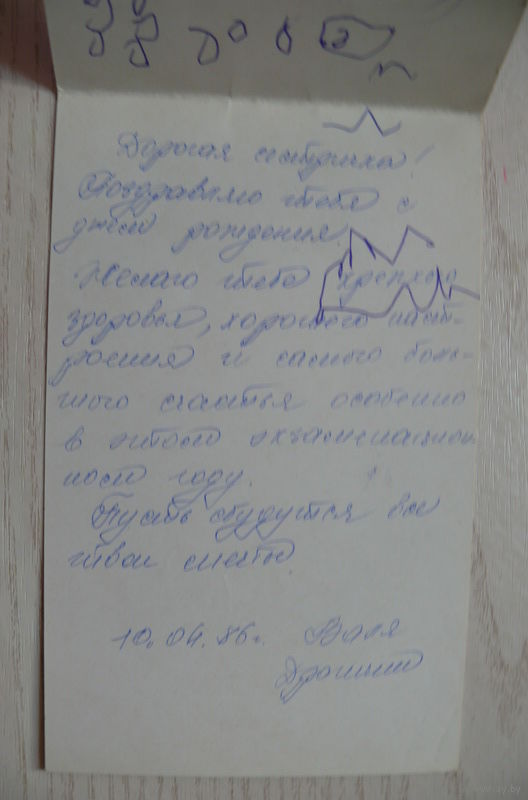 Дорогая сестричка!
Поздравляю тебя с
днем рождения.
Желаю тебе крепкого
здоровья, хорошего наст-
роения и самого боль-
шого счастья особенно
в этом экзаменацион-
ном году.
Пусть сбудутся все
твои мечты.
10.04.86г. Валя